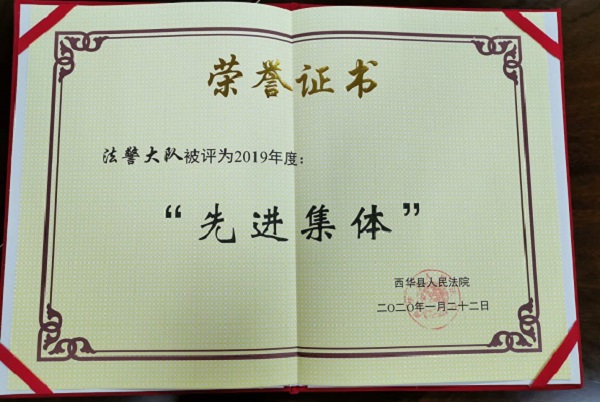 荣誉证书
法警大队被评为2019年度：
“先进集体”
西华县人民法院
二〇二〇年一月二十二日